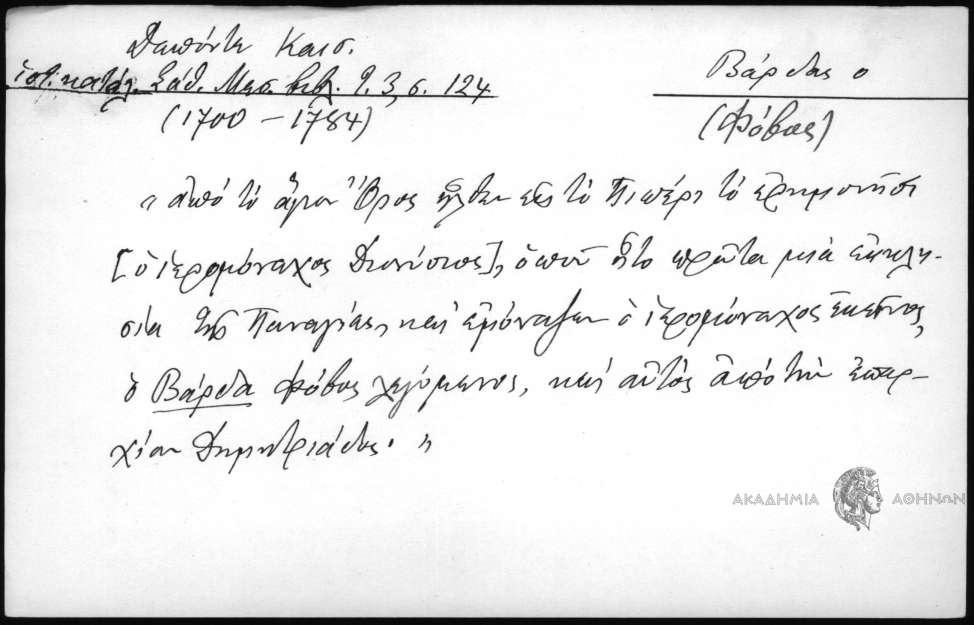 Δαπόντε Καισ.
ἱστ. κατάλ. Σάθ. Μεσ. βιβλ. τ. 3, σ. 124
(1700 – 1784)
Βάρδας ο
(Φόβος)
"ἀπό τό ἅγιον Ὄρος ἦλθεν εἰς τό Πιπέρι τό ἐρημονήσι
[ὁ ἱερομόναχος Διονύσιος], ὁποῦ ἦτο πρῶτα μιά ἐκκλη-
σία τῆς Παναγίας, καί ἐμόναζεν ὁ ἱερομόναχος ἐκεῖνος,
ὁ Βάρδα Φόβος λεγόμενος, καί αὐτός ἀπό τήν ἐπαρ-
χίαν Δημητριάδος."
ΑΚΑΔΗΜΙΑ ΑΘΗΝΩΝ